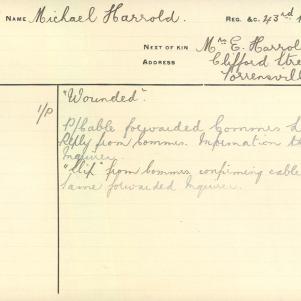 NAME Michael Harrold. REG. &C. 43rd
NEXT OF KIN Mrs E. Harrol
ADDRESS Clifford Stre
Torrensvill
"Wounded".
1/P P/Cable forwarded Commes L
Reply from Commes. Information th
Inquirer.
"Slip" from Commes confirming cable
same forwarded Inquirer.